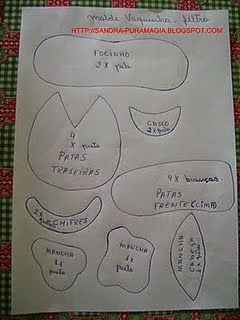 molde Vaquinha - feltro
HTTP://SANDRA-PURAMAGIA.BLOGSPOT.COM
FOCINHO
2 x pele
4
x preto
PATAS
TRASEIRAS
CASCO
2 x preto
4 x brancas
PATAS
FRENTE (CIMA)
CHIFRES
MANCHA
1x
preto
MANCHA
1x
preto
MANCHA
CABEÇA
1 x
preto